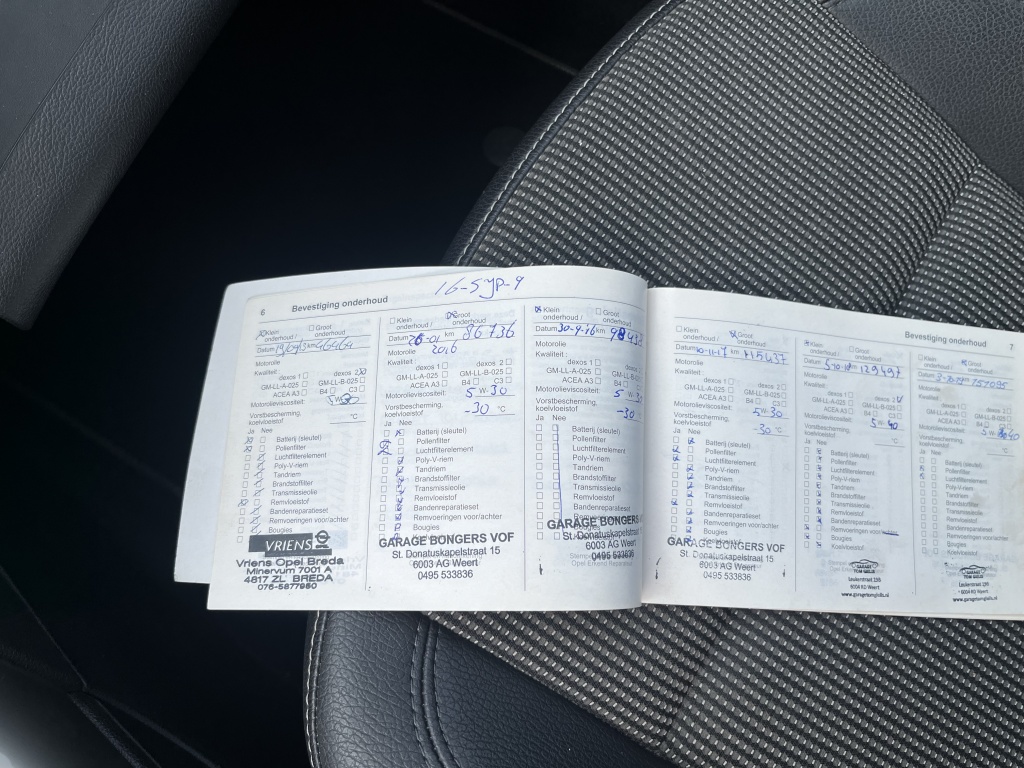 16-SJP-9
6 Bevestiging onderhoud
Klein onderhoud / Groot onderhoud
Datum km 46464
Motorolie
Kwaliteit:
dexos 1 dexos 2
GM-LL-A-025 GM-LL-B-025
ACEA A3 B4 C3
Motorolieviscositeit: 5W30
Vorstbescherming, koelvloeistof °C
Ja Nee
Batterij (sleutel)
Pollenfilter
Luchtfilterelement
Poly-V-riem
Tandriem
Brandstoffilter
Transmissieolie
Remvloeistof
Bandenreparatieset
Remvoeringen voor/achter
Bougies
VRIENS
Vriens Opel Breda
Minervum 7001 A
4817 ZL BREDA
076-5877950
Klein onderhoud / Groot onderhoud
Datum 26-01 2016 km 86736
Motorolie
Kwaliteit:
dexos 1 dexos 2
GM-LL-A-025 GM-LL-B-025
ACEA A3 B4 C3
Motorolieviscositeit: 5 W-30
Vorstbescherming, koelvloeistof -30 °C
Ja Nee
Batterij (sleutel)
Pollenfilter
Luchtfilterelement
Poly-V-riem
Tandriem
Brandstoffilter
Transmissieolie
Remvloeistof
Bandenreparatieset
Remvoeringen voor/achter
Bougies
GARAGE BONGERS VOF
St. Donatuskapelstraat 15
6003 AG Weert
0495 533836
Klein onderhoud / Groot onderhoud
Datum 30-9-16 km
Motorolie
Kwaliteit:
dexos 1
GM-LL-A-025
ACEA A3 B4
Motorolieviscositeit: 5 W-
Vorstbescherming, koelvloeistof -30
Ja Nee
Batterij (sleutel)
Pollenfilter
Luchtfilterelement
Poly-V-riem
Tandriem
Brandstoffilter
Transmissieolie
Remvloeistof
Bandenreparatieset
GARAGE BONGERS
St. Donatuskapelstraat 15
6003 AG Weert
0495 533836
Bevestiging onderhoud 7
Klein onderhoud / Groot onderhoud
Datum 10-11-17 km 115437
Motorolie
Kwaliteit:
dexos 1 dexos 2
GM-LL-A-025 GM-LL-B-025
ACEA A3 B4 C3
Motorolieviscositeit: 5W-30
Vorstbescherming, koelvloeistof -30 °C
Ja Nee
Batterij (sleutel)
Pollenfilter
Luchtfilterelement
Poly-V-riem
Tandriem
Brandstoffilter
Transmissieolie
Remvloeistof
Bandenreparatieset
Remvoeringen voor/achter
Bougies
GARAGE BONGERS VOF
St. Donatuskapelstraat 15
6003 AG Weert
0495 533836
Klein onderhoud / Groot onderhoud
Datum km 129497
Motorolie
Kwaliteit:
dexos 1
GM-LL-A-025 GM-LL-B-025
ACEA A3 B4 C3
Motorolieviscositeit: 5 W-40
Vorstbescherming, koelvloeistof °C
Ja Nee
Batterij (sleutel)
Pollenfilter
Luchtfilterelement
Poly-V-riem
Tandriem
Brandstoffilter
Transmissieolie
Remvloeistof
Bandenreparatieset
Remvoeringen voor/achter
Bougies
Koelvloeistof
GARAGE
Leukerstraat
Weert
Klein onderhoud / Groot onderhoud
Datum
Motorolie
Kwaliteit:
dexos 1 dexos 2
GM-LL-A-025 GM-LL-B-025
ACEA A3 B4 C3
Motorolieviscositeit: 5 W-
Vorstbescherming, koelvloeistof °C
Ja Nee
Batterij (sleutel)
Pollenfilter
Luchtfilterelement
Poly-V-riem
Tandriem
Brandstoffilter
Transmissieolie
Remvloeistof
Bandenreparatieset
Remvoeringen voor/achter
Bougies
Koelvloeistof
GARAGE
Leukerstraat
Weert